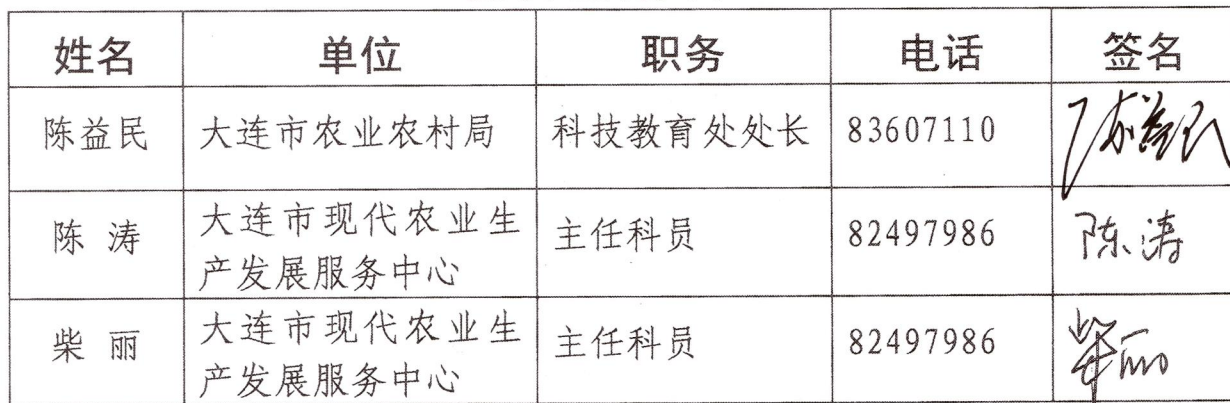 姓名 单位 职务 电话 签名
陈益民 大连市农业农村局 科技教育处处长 83607110 陈益民
陈 涛 大连市现代农业生
产发展服务中心 主任科员 82497986 陈涛
柴 丽 大连市现代农业生
产发展服务中心 主任科员 82497986 柴丽